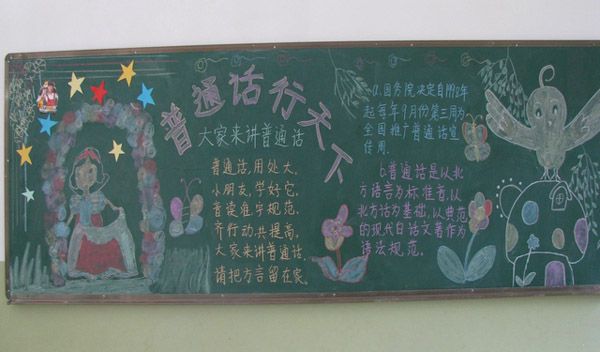 普通话行天下
大家来讲普通话
普通话,用处大,
小朋友,学好它,
普读准字规范,
齐行动,共提高,
大家来讲普通话,
请把方言留在家。
a.国务院决定自1992年
起每年9月份第三周为
全国推广普通话宣
传周。
b.普通话是以北
方语言为标准普,以
北方话为基础,以典范
的现代白话文著作为
语法规范。